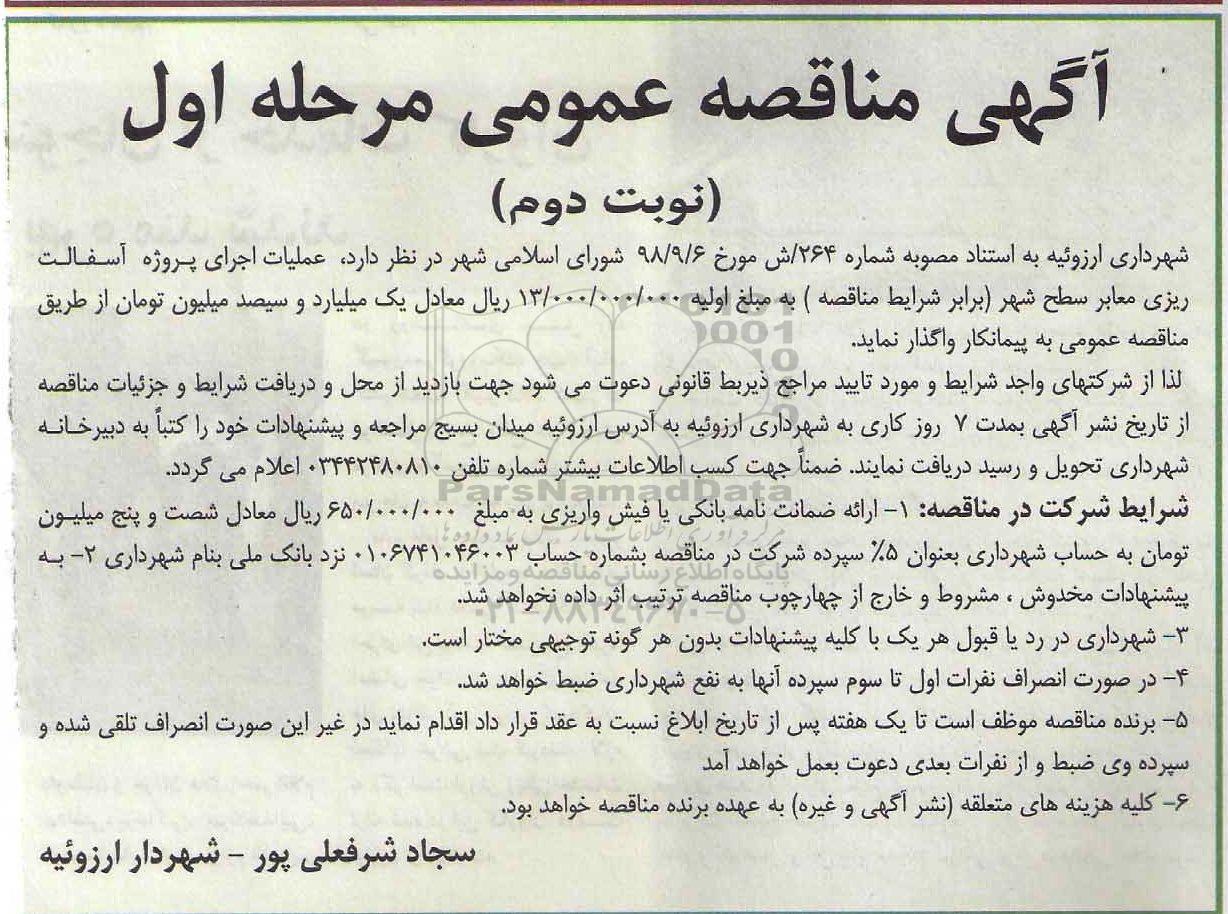 آگهی مناقصه عمومی مرحله اول
(نوبت دوم)
شهرداری ارزوئیه به استناد مصوبه شماره ۲۶۴/ش مورخ ۹۸/۹/۶ شورای اسلامی شهر در نظر دارد، عملیات اجرای پروژه آسفالت
ریزی معابر سطح شهر (برابر شرایط مناقصه ) به مبلغ اولیه ۱۳/۰۰۰/۰۰۰/۰۰۰ ریال معادل یک میلیارد و سیصد میلیون تومان از طریق
مناقصه عمومی به پیمانکار واگذار نماید.
لذا از شرکتهای واجد شرایط و مورد تایید مراجع ذیربط قانونی دعوت می شود جهت بازدید از محل و دریافت شرایط و جزئیات مناقصه
از تاریخ نشر آگهی بمدت ۷ روز کاری به شهرداری ارزوئیه به آدرس ارزوئیه میدان بسیج مراجعه و پیشنهادات خود را کتباً به دبیرخانه
شهرداری تحویل و رسید دریافت نمایند. ضمناً جهت کسب اطلاعات بیشتر شماره تلفن ۰۳۴۴۲۴۸۰۸۱۰ اعلام می گردد.
ParsNamadData
شرایط شرکت در مناقصه: ۱- ارائه ضمانت نامه بانکی یا فیش واریزی به مبلغ ۶۵۰/۰۰۰/۰۰۰ ریال معادل شصت و پنج میلیون
تومان به حساب شهرداری بعنوان ۵٪ سپرده شرکت در مناقصه بشماره حساب ۰۱۰۶۷۴۱۰۴۶۰۰۳ نزد بانک ملی بنام شهرداری ۲- به
پایگاه اطلاع رسانی مناقصه و مزایده
پیشنهادات مخدوش ، مشروط و خارج از چهارچوب مناقصه ترتیب اثر داده نخواهد شد.
۰۲۱-۸۸۳۴۹۶۷۰-۵
۳- شهرداری در رد یا قبول هر یک با کلیه پیشنهادات بدون هر گونه توجیهی مختار است.
۴- در صورت انصراف نفرات اول تا سوم سپرده آنها به نفع شهرداری ضبط خواهد شد.
۵- برنده مناقصه موظف است تا یک هفته پس از تاریخ ابلاغ نسبت به عقد قرار داد اقدام نماید در غیر این صورت انصراف تلقی شده و
سپرده وی ضبط و از نفرات بعدی دعوت بعمل خواهد آمد
۶- کلیه هزینه های متعلقه (نشر آگهی و غیره) به عهده برنده مناقصه خواهد بود.
سجاد شرفعلی پور - شهردار ارزوئیه